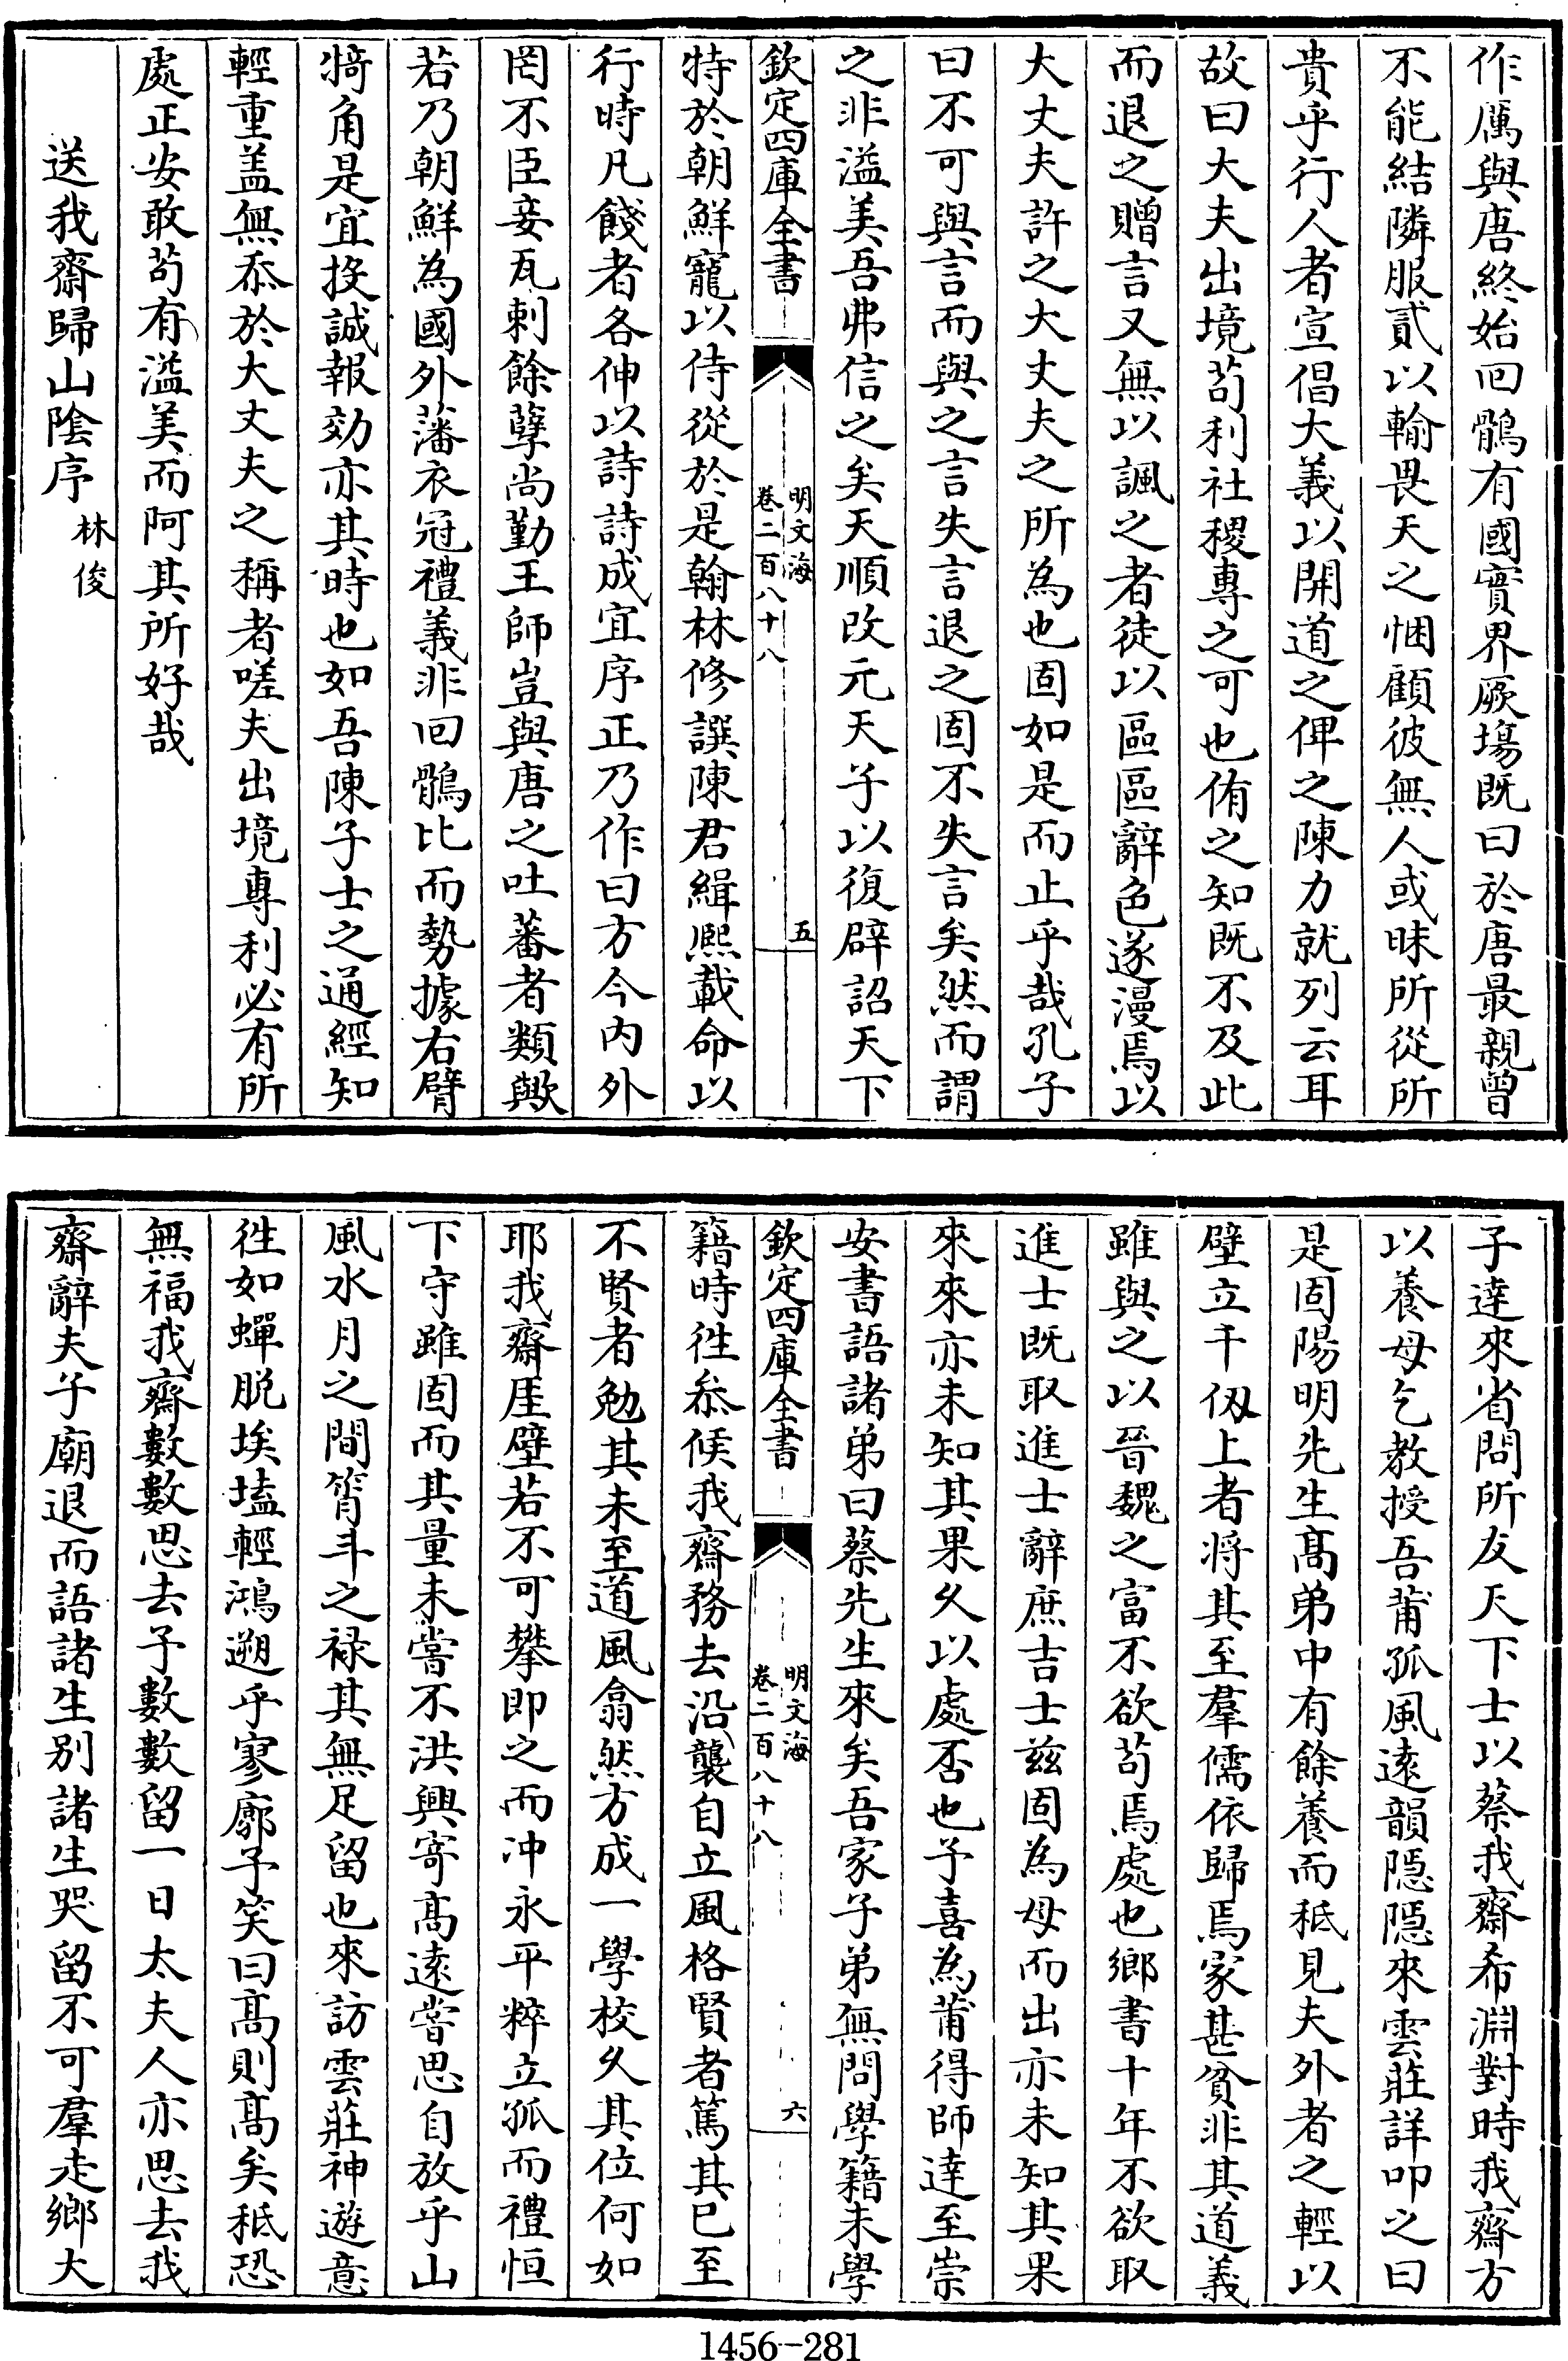 作厲與唐終始回鶻有國實界厥塲既曰於唐最親曾
不能結隣服貳以輸畏天之悃顧彼無人或昧所從所
貴乎行人者宣倡大義以開道之俾之陳力就列云耳
故曰大夫出境茍利社稷專之可也侑之知既不及此
而退之贈言又無以諷之者徒以區區辭色遂漫焉以
大丈夫許之大丈夫之所為也固如是而止乎哉孔子
曰不可與言而與之言失言退之固不失言矣然而謂
之非溢美吾弗信之矣天順改元天子以復辟詔天下
欽定四庫全書
明文海
卷二百八十八
五
特於朝鮮寵以侍從於是翰林修譔陳君緝熙載命以
行時凡餞者各伸以詩詩成宜序正乃作曰方今内外
罔不臣妾瓦剌餘孽尚勤王師豈與唐之吐蕃者類歟
若乃朝鮮為國外藩衣冠禮義非回鶻比而勢據右臂
犄角是宜投誠報効亦其時也如吾陳子士之通經知
輕重盖無忝於大丈夫之稱者嗟夫出境專利必有所
處正安敢茍有溢美而阿其所好哉
送我齋歸山隂序　林俊
子達來省問所友天下士以蔡我齋希淵對時我齋方
以養母乞教授吾莆孤風逺韻隠隠來雲莊詳叩之曰
是固陽明先生髙弟中有餘養而秪見夫外者之輕以
壁立千仭上者将其至羣儒依歸焉家甚貧非其道義
雖與之以晉魏之富不欲茍焉處也鄉書十年不欲取
進士既取進士辭庶吉士兹固為母而出亦未知其果
來來亦未知其果乆以處否也予喜為莆得師達至崇
安書語諸弟曰蔡先生來矣吾家子弟無問學籍未學
欽定四庫全書
明文海
卷二百八十八
六
籍時徃叅候我齋務去沿襲自立風格賢者篤其已至
不賢者勉其未至道風翕然方成一學校乆其位何如
耶我齋厓壁若不可攀即之而冲永平粹立孤而禮恒
下守雖固而其量未嘗不洪興寄髙逺嘗思自放乎山
風水月之間筲斗之禄其無足留也來訪雲莊神遊意
徃如蟬脱埃壒輕鴻遡乎寥廓予笑曰髙則髙矣秪恐
無福我齋數數思去予數數留一日太夫人亦思去我
齋辭夫子廟退而語諸生别諸生哭留不可羣走鄉大
1456-281